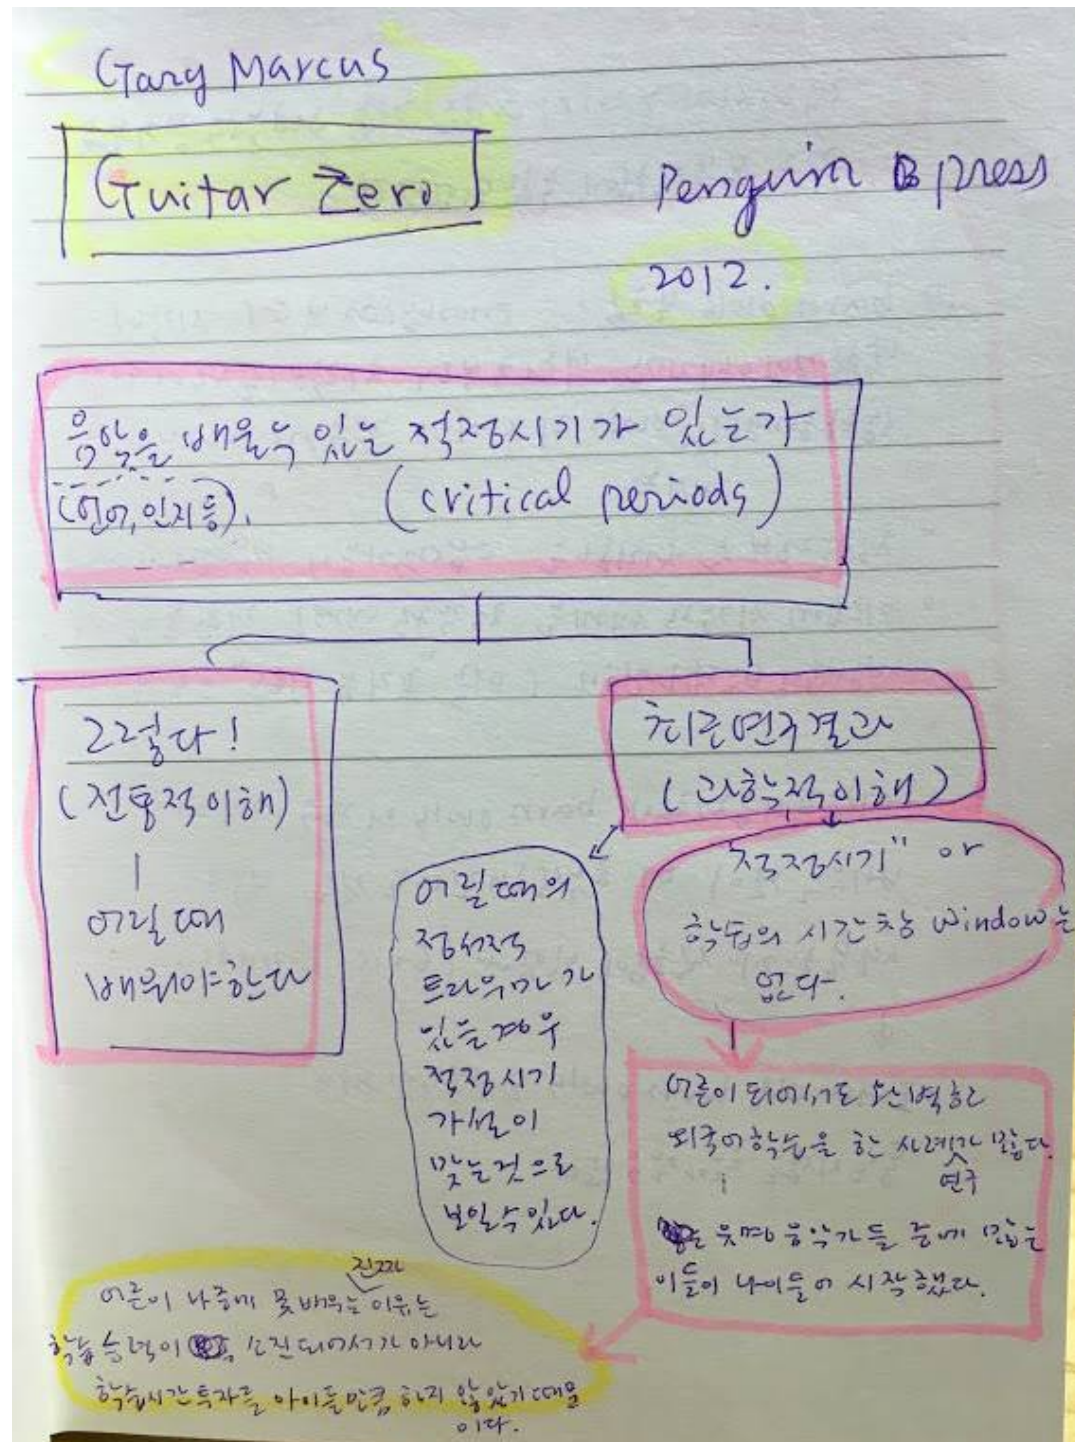 Gary Marcus
Guitar Zero
Penguin press
2012.
음악을 배울수 있는 적정시기가 있는가
(언어, 인지 등). (critical periods)
그렇다!
(전통적이해)
어릴때
배워야한다
최근연구결과
(과학적이해)
어릴때의
정서적
트라우마가
있는경우
적정시기
가설이
맞는것으로
보일수있다.
적정시기" or
학습의 시간창 window는
없다.
어른이 되어서도 완벽한
외국어학습을 한 사례가 많다.
연구
유명 음악가들 중에 많은
이들이 나이들어 시작했다.
진짜
어른이 나중에 못배우는 이유는
학습능력이 소진되어서가 아니라
학습시간투자를 아이들만큼 하지 않았기 때문
이다.